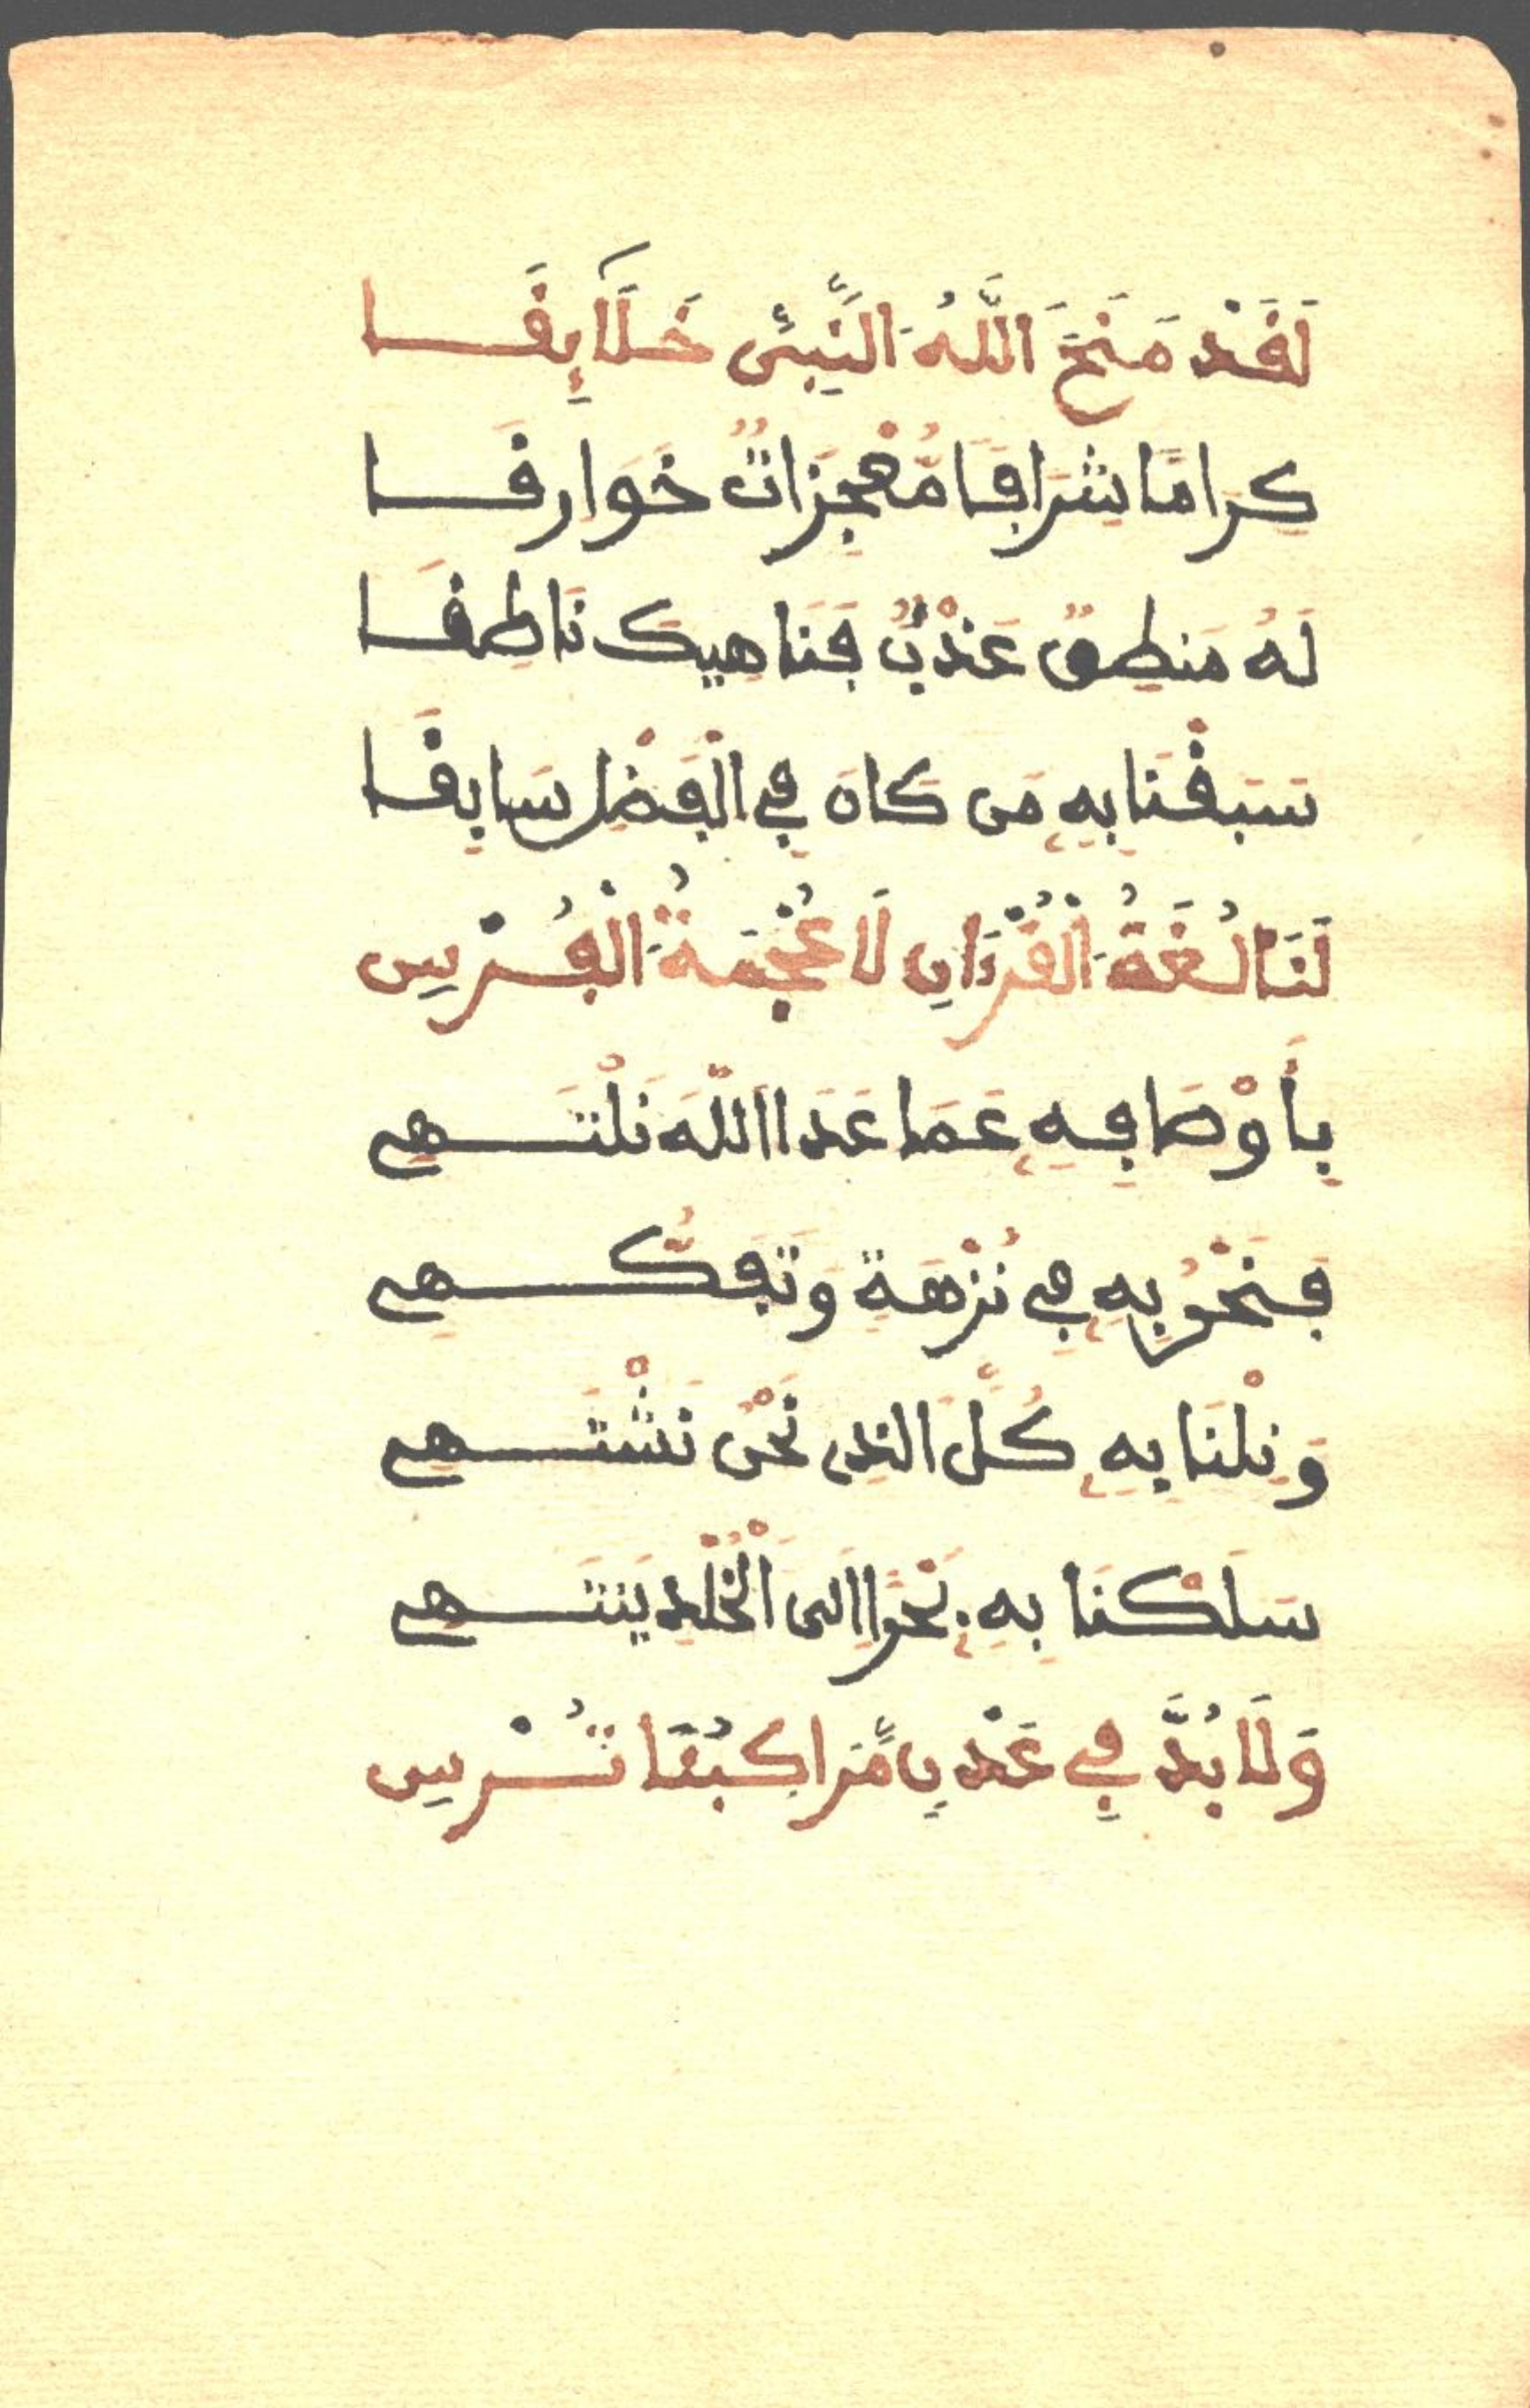 لَقَدْ مَنَحَ اللَّهُ النَّبِيَّ خَلَآئِقَا
كِرَامًا شِرَافًا مُّعْجِزَاتٌ خَوَارِقَا
لَهُ مَنطِقٌ عَذْبٌ فَنَاهِيكَ نَاطِقَا
سَبَقْنَا بِهِ مَن كَانَ فِي الْفَضْلِ سَابِقَا
لَنَا لُغَةُ الْقُرْءَانِ لَا عُجْمَةُ الْفُرْسِ
بِأَوْصَافِهِ عَمَا عَدَا اللَّهَ نَلْتَهِي
فَنَحْنُ بِهِ فِي نُزْهَةٍ وَتَفَكُّهِ
وَنِلْنَا بِهِ كُلَّ الذِي نَحْنُ نَشْتَهِي
سَلَكْنَا بِهِ نَحْوًا اِلَى الْخُلْدِ يَنتَهِي
وَلَا بُدَّ فِي عَدْنٍ مَّرَاكِبُنَا تُرْسِ